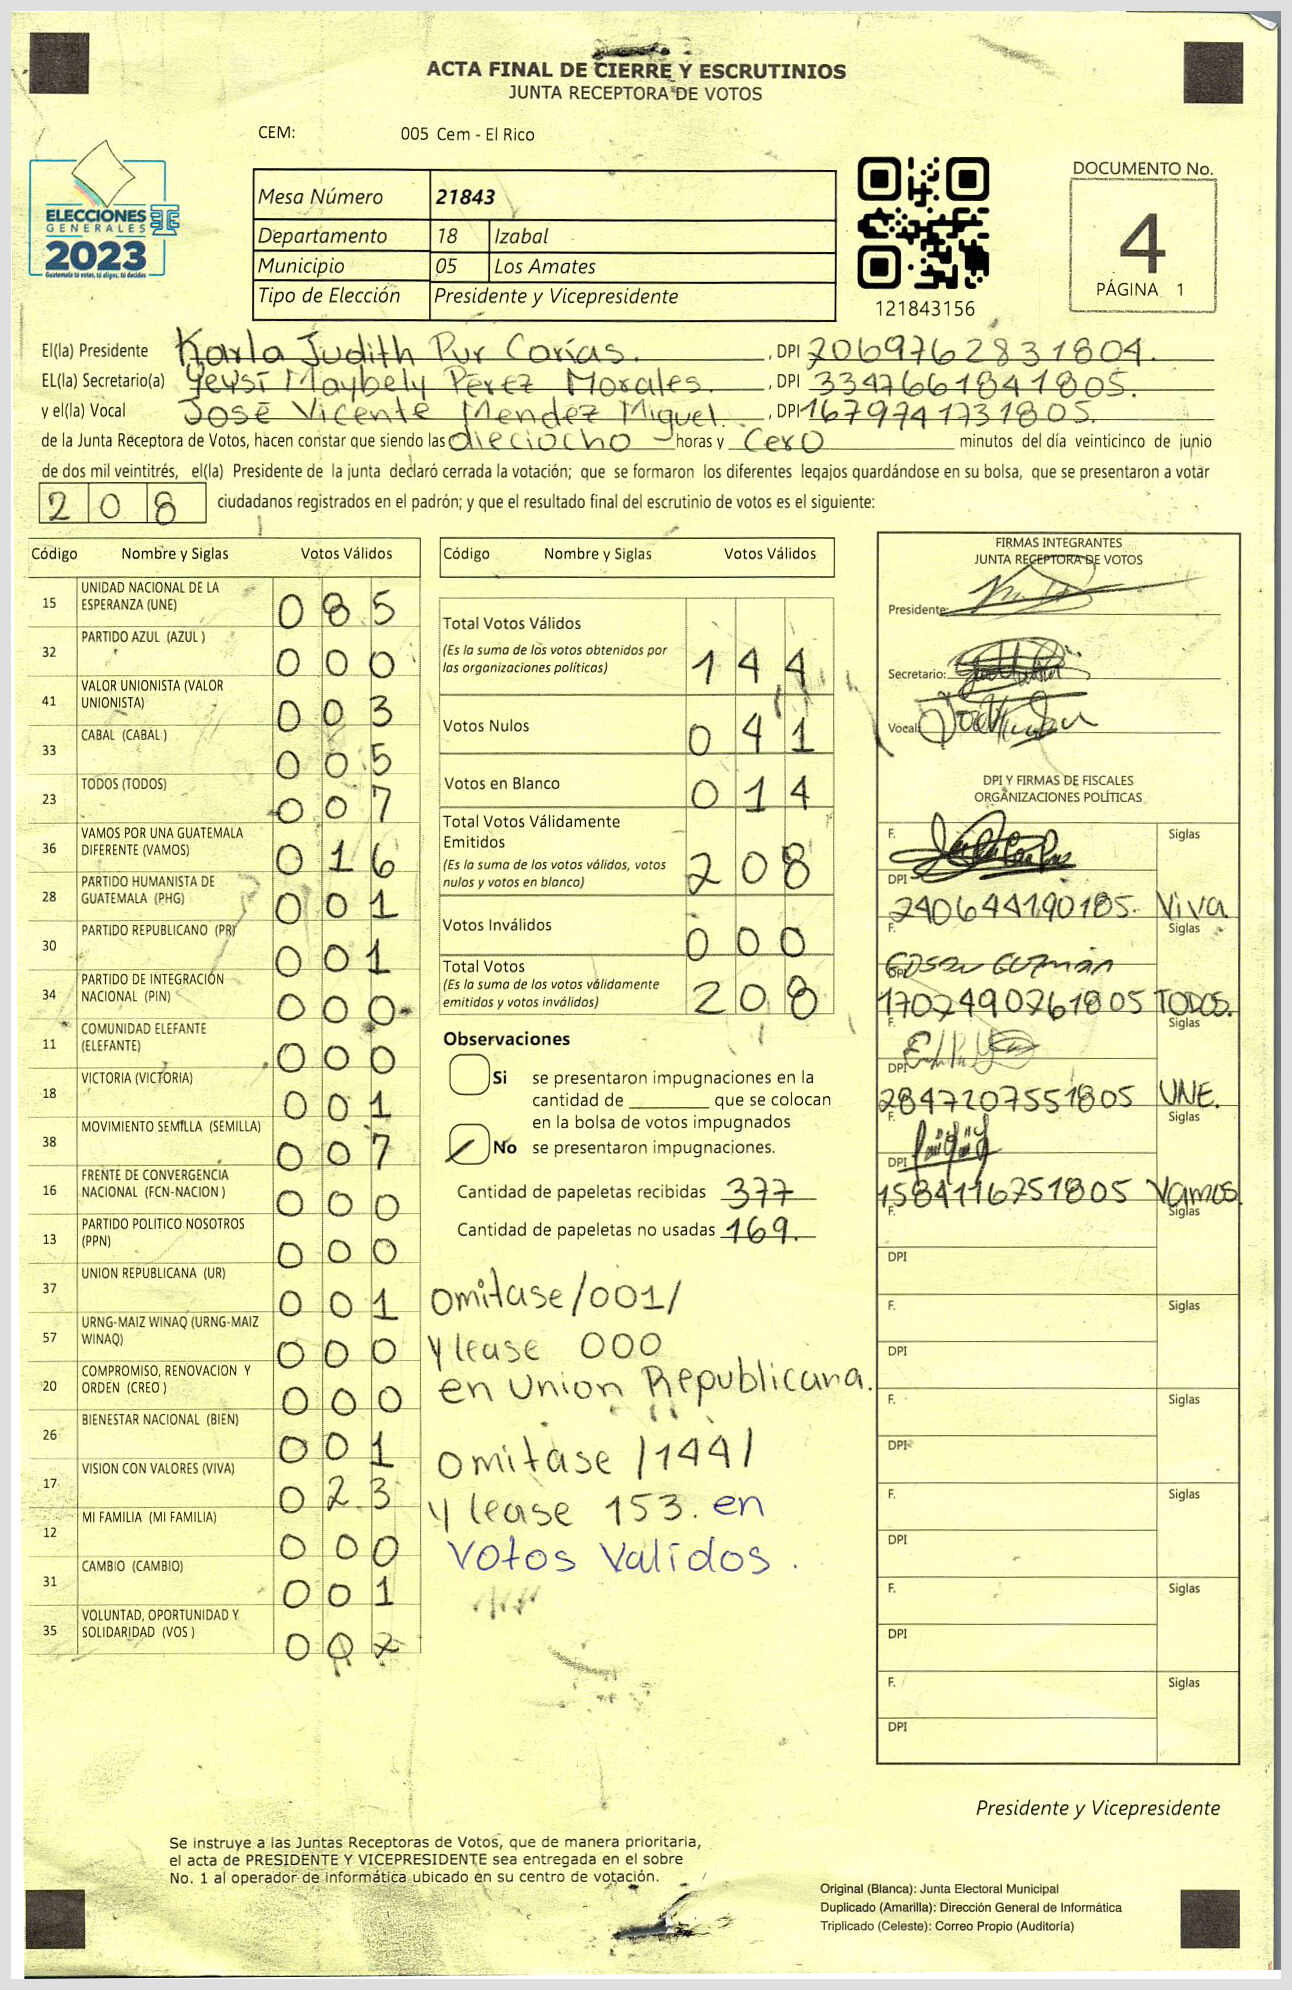 ACTA FINAL DE CIERRE Y ESCRUTINIOS
JUNTA RECEPTORA DE VOTOS
CEM: 005 Cem - El Rico
ELECCIONES
GENERALES
2023
Guatemala tú votas, tú eliges, tú decides
Mesa Número 21843
Departamento 18 Izabal
Municipio 05 Los Amates
Tipo de Elección Presidente y Vicepresidente
121843156
DOCUMENTO No.
4
PÁGINA 1
El(la) Presidente Karla Judith Pur Corías. , DPI 2069762831804.
EL(la) Secretario(a) Yeysi Maybely Pérez Morales. , DPI 3347661841805.
y el(la) Vocal José Vicente Mendez Miguel. , DPI 1679741731805.
de la Junta Receptora de Votos, hacen constar que siendo las dieciocho horas y Cero minutos del día veinticinco de junio
de dos mil veintitrés, el(la) Presidente de la junta declaró cerrada la votación; que se formaron los diferentes legajos guardándose en su bolsa, que se presentaron a votar
208 ciudadanos registrados en el padrón; y que el resultado final del escrutinio de votos es el siguiente:
Código Nombre y Siglas Votos Válidos
15 UNIDAD NACIONAL DE LA ESPERANZA (UNE) 085
32 PARTIDO AZUL (AZUL ) 000
41 VALOR UNIONISTA (VALOR UNIONISTA) 003
33 CABAL (CABAL ) 005
23 TODOS (TODOS) 007
36 VAMOS POR UNA GUATEMALA DIFERENTE (VAMOS) 016
28 PARTIDO HUMANISTA DE GUATEMALA (PHG) 001
30 PARTIDO REPUBLICANO (PR) 001
34 PARTIDO DE INTEGRACIÓN NACIONAL (PIN) 000
11 COMUNIDAD ELEFANTE (ELEFANTE) 000
18 VICTORIA (VICTORIA) 001
38 MOVIMIENTO SEMILLA (SEMILLA) 007
16 FRENTE DE CONVERGENCIA NACIONAL (FCN-NACION ) 000
13 PARTIDO POLITICO NOSOTROS (PPN) 000
37 UNION REPUBLICANA (UR) 001
57 URNG-MAIZ WINAQ (URNG-MAIZ WINAQ) 000
20 COMPROMISO, RENOVACION Y ORDEN (CREO ) 000
26 BIENESTAR NACIONAL (BIEN) 001
17 VISION CON VALORES (VIVA) 023
12 MI FAMILIA (MI FAMILIA) 000
31 CAMBIO (CAMBIO) 001
35 VOLUNTAD, OPORTUNIDAD Y SOLIDARIDAD (VOS ) 002
Código Nombre y Siglas Votos Válidos
Total Votos Válidos
(Es la suma de los votos obtenidos por
las organizaciones políticas) 144
Votos Nulos 041
Votos en Blanco 014
Total Votos Válidamente
Emitidos
(Es la suma de los votos válidos, votos
nulos y votos en blanco) 208
Votos Inválidos 000
Total Votos
(Es la suma de los votos válidamente
emitidos y votos inválidos) 208
Observaciones
Si se presentaron impugnaciones en la
cantidad de ________ que se colocan
en la bolsa de votos impugnados
No se presentaron impugnaciones.
Cantidad de papeletas recibidas 377
Cantidad de papeletas no usadas 169.
omitase /001/
y lease 000
en Union Republicana.
omitase /144/
y lease 153. en
votos validos.
FIRMAS INTEGRANTES
JUNTA RECEPTORA DE VOTOS
Presidente:
Secretario:
Vocal:
DPI Y FIRMAS DE FISCALES
ORGANIZACIONES POLÍTICAS
F. Siglas
DPI 240644190185. Viva
F. Siglas
Guzmán
DPI 1702490261805 TODOS.
F. Siglas
DPI 2847207551805 UNE.
F. Siglas
DPI 1584116751805 Vamos.
F. Siglas
DPI
F. Siglas
DPI
F. Siglas
DPI
F. Siglas
DPI
F. Siglas
DPI
F. Siglas
DPI
Presidente y Vicepresidente
Se instruye a las Juntas Receptoras de Votos, que de manera prioritaria,
el acta de PRESIDENTE Y VICEPRESIDENTE sea entregada en el sobre
No. 1 al operador de informática ubicado en su centro de votación.
Original (Blanca): Junta Electoral Municipal
Duplicado (Amarilla): Dirección General de Informática
Triplicado (Celeste): Correo Propio (Auditoría)